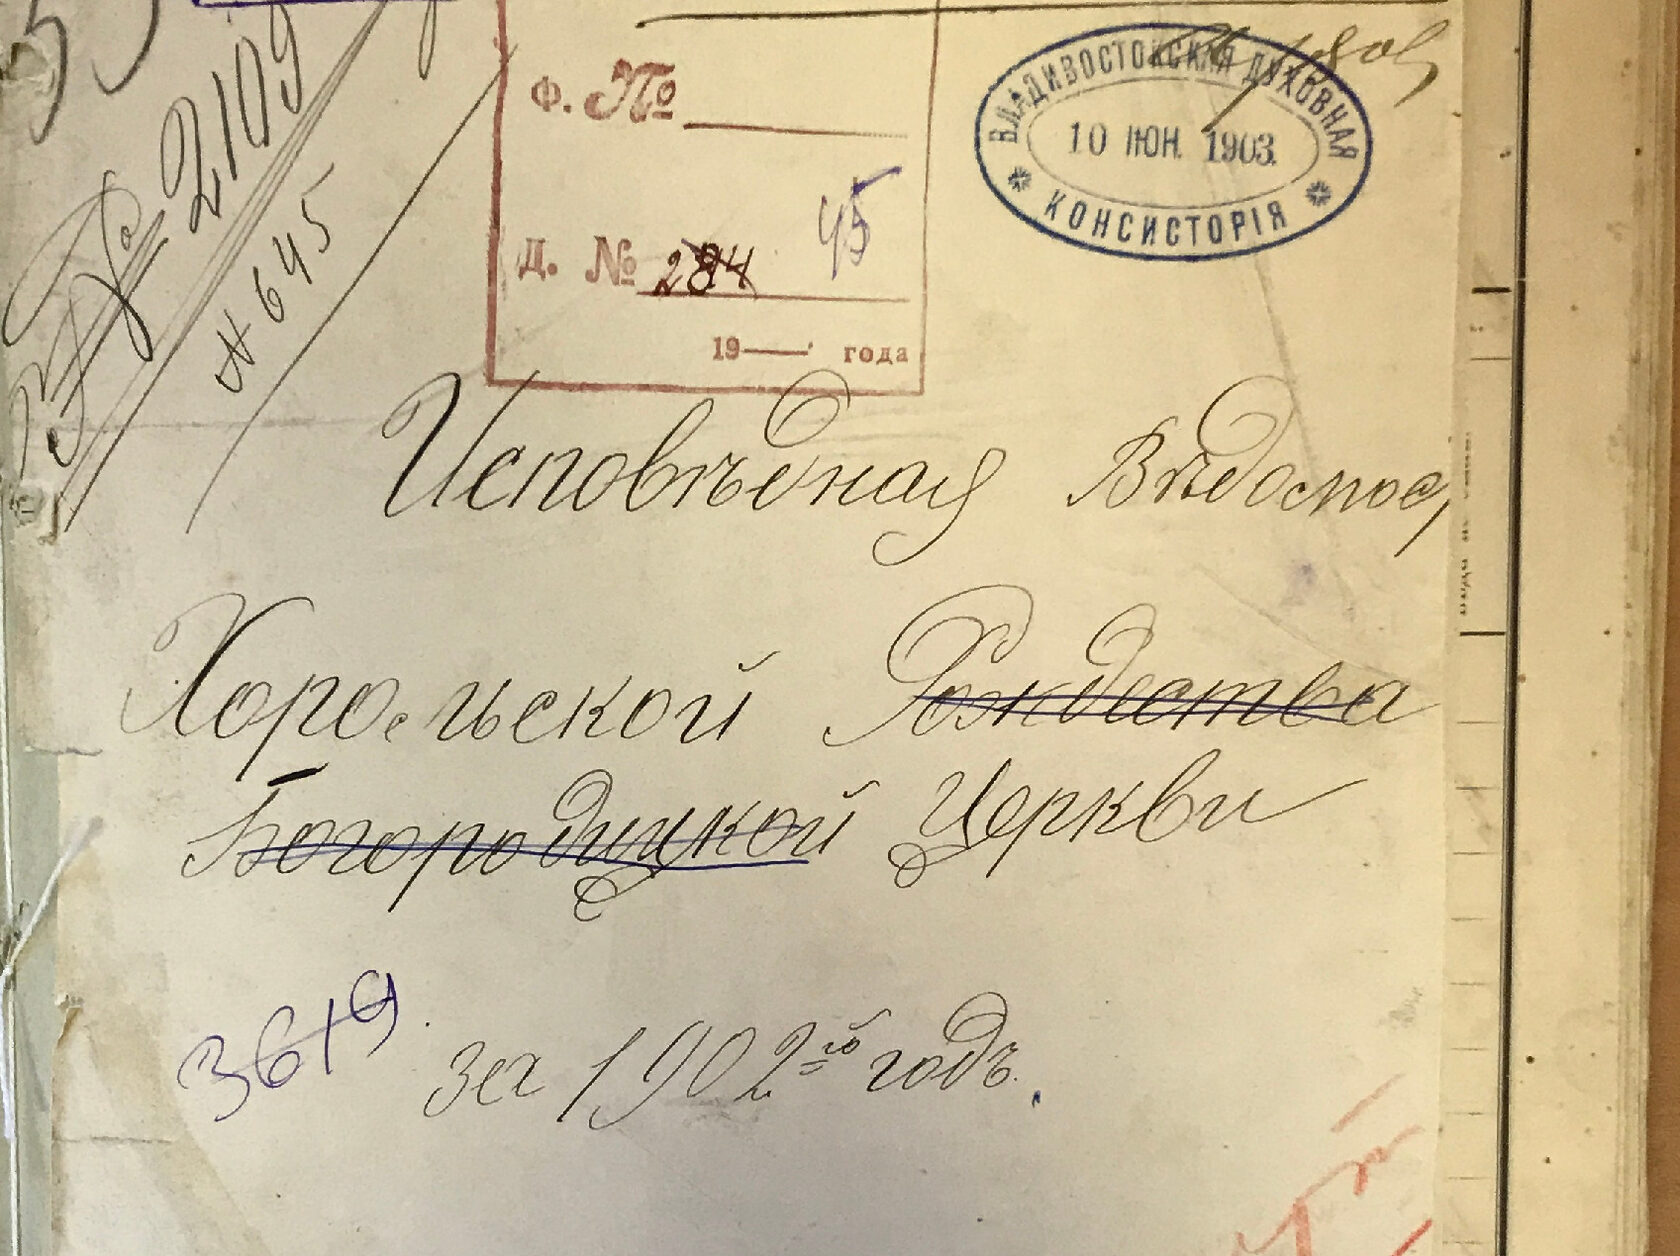 № 2109
№ 645
Ф. №
Д. № 284 45
19 года
ВЛАДИВОСТОКСКАЯ ДУХОВНАЯ
10 ІЮН. 1903.
КОНСИСТОРІЯ
Исповѣдная Вѣдомос
Хорольской Рождества
Богородицкой Церкви
3619
за 1902-й годъ.